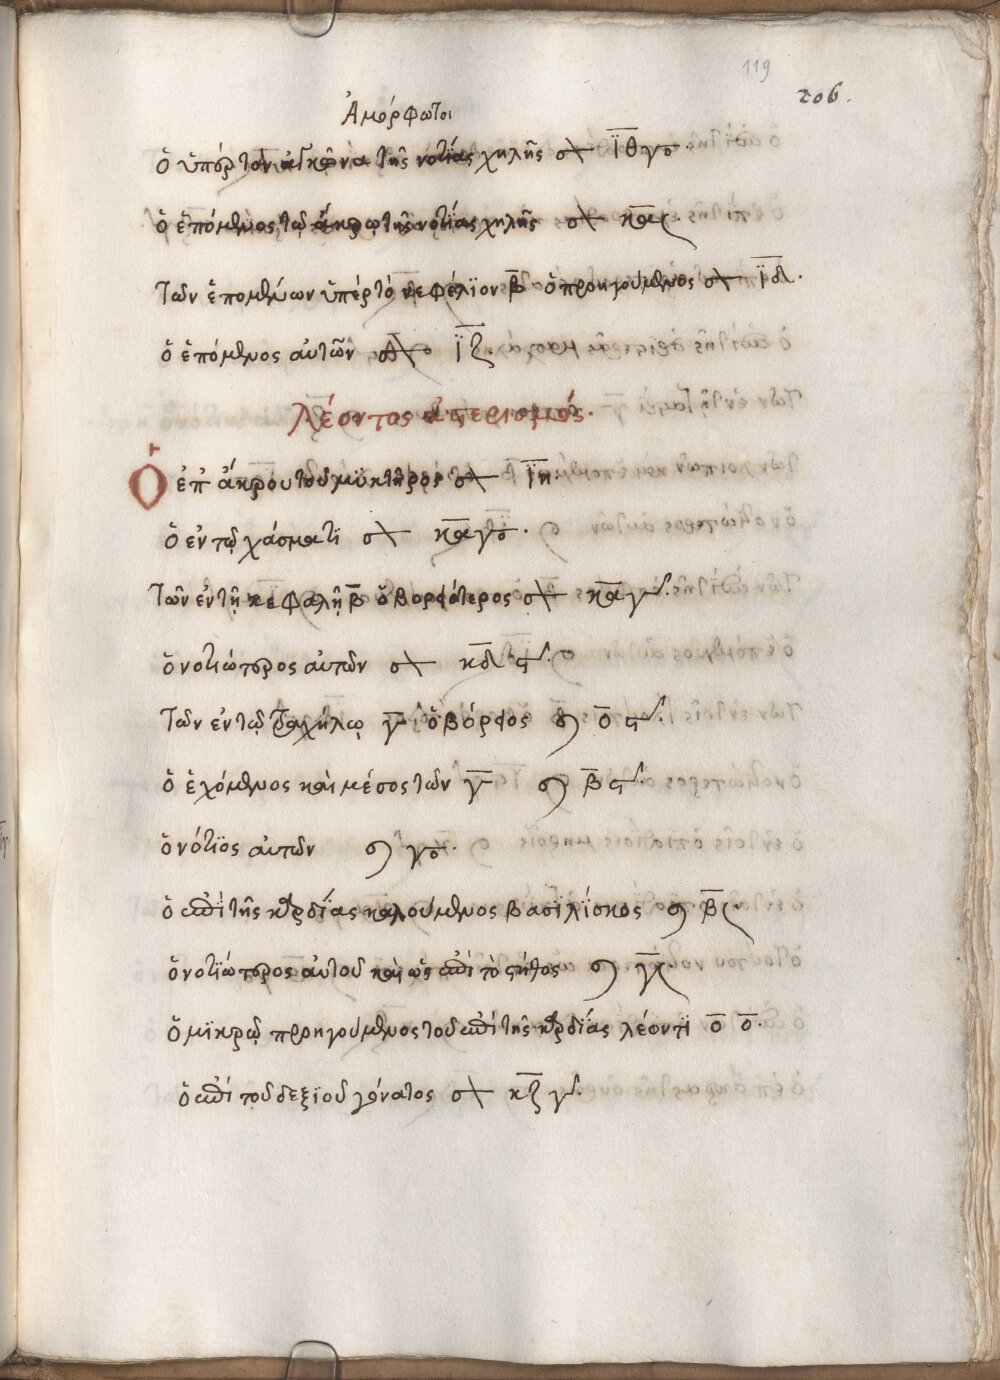 119
206.
Ἀμόρφωτοι
ὁ ὑπὲρ τὸν ἀγκῶνα τῆς νοτίας χηλῆς ϊθ γο
ὁ ἑπόμενος τῷ ἄκρῳ τῆς νοτίας χηλῆς κα
Τῶν ἑπομένων ὑπὲρ τὸ νεφέλϊον β ὁ προηγούμενος ϊδ.
ὁ ἑπόμενος αὐτῶν ϊζ
Λέοντος ἀστερισμός.
Ὁ ἐπ ἄκρου τοῦ μϋκτῆρος ϊη.
ὁ ἐν τῷ χάσματϊ κα γο.
Τῶν ἐν τῇ κεφαλῇ β ὁ βορειότερος κα γ.
ὁ νοτιώτερος αὐτῶν κδ ϛ.
Τῶν ἐν τῷ τραχήλῳ γ ὁ βόρειος ο ϛ.
ὁ ἐχόμενος καὶ μέσος τῶν γ β ϛ.
ὁ νότϊος αὐτῶν γο.
ὁ ἐπὶ τῆς καρδίας καλούμενος βασϊλίσκος β
ὁ νοτιώτερος αὐτοῦ καὶ ὡς ἐπὶ τὸ στῆθος γ
ὁ μϊκρῷ προηγούμενος τοῦ ἐπὶ τῆς καρδίας λέοντϊ ο ο.
ὁ ἐπὶ τοῦ δεξϊοῦ γόνατος κζ γ.